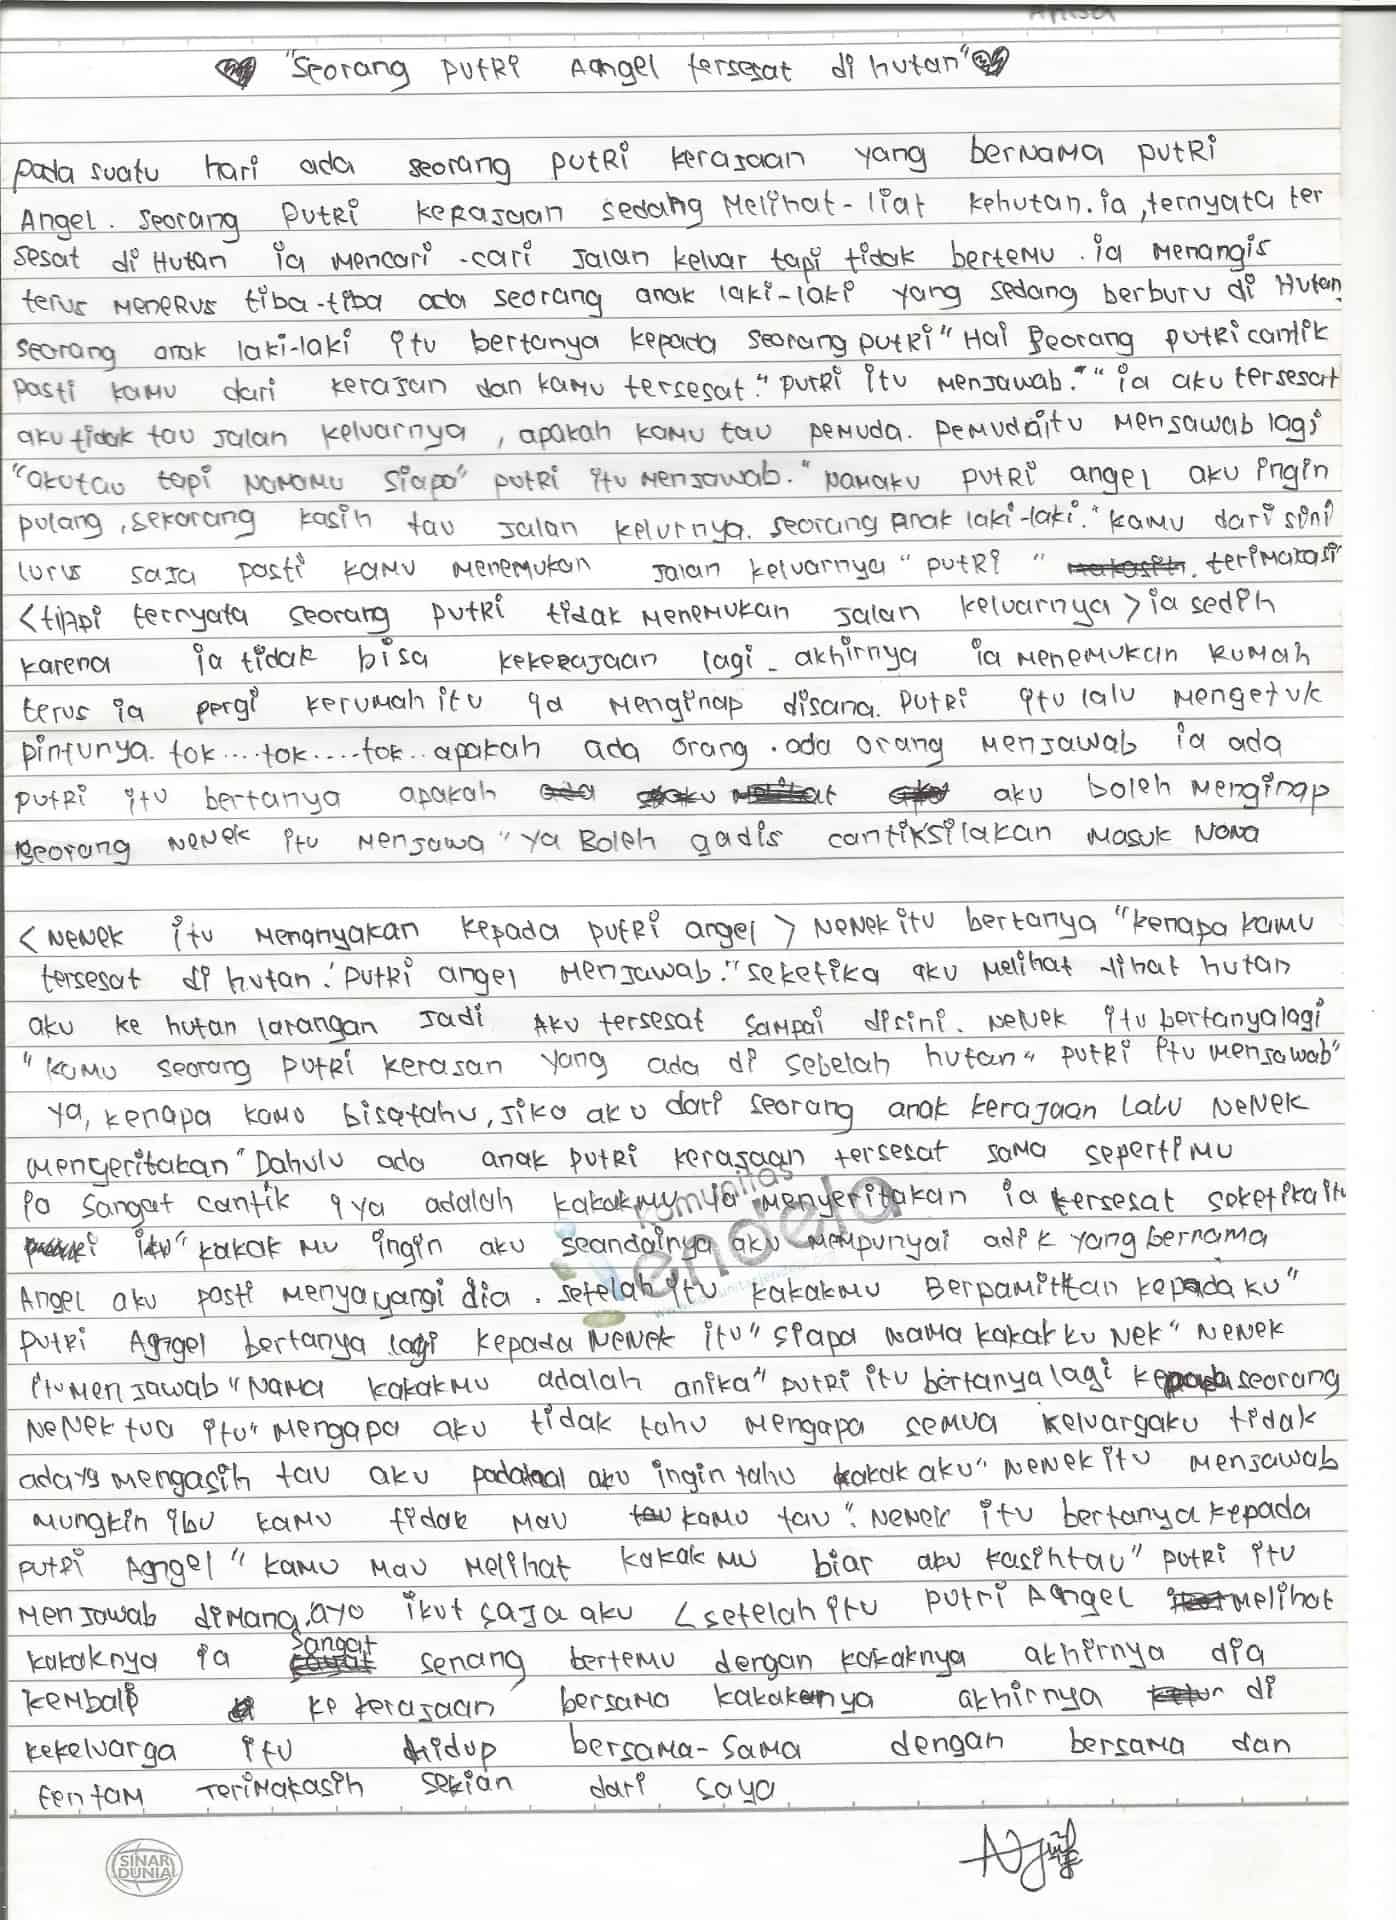 Anisa
"Seorang putri Aangel tersesat di hutan"
pada suatu hari ada seorang putri kerajaan yang bernama putri
Angel. seorang putri kerajaan sedang melihat-liat kehutan. ia, ternyata ter
sesat di Hutan ia mencari-cari jalan keluar tapi tidak bertemu. ia menangis
terus menerus tiba-tiba ada seorang anak laki-laki yang sedang berburu di Hutan
seorang anak laki-laki itu bertanya kepada seorang putri "Hai seorang putri cantik
pasti kamu dari kerajan dan kamu tersesat." putri itu menjawab." "ia aku tersesat
aku tidak tau jalan keluarnya, apakah kamu tau pemuda. pemuda itu menjawab lagi
"aku tau tapi namamu siapa" putri itu menjawab." namaku putri angel aku ingin
pulang, sekarang kasih tau jalan kelurnya. seorang anak laki-laki." kamu dari sini
lurus saja pasti kamu menemukan jalan keluarnya "putri" makasih. terimakasi
<tapi ternyata seorang putri tidak menemukan jalan keluarnya> ia sedih
karena ia tidak bisa kekerajaan lagi. akhirnya ia menemukan rumah
terus ia pergi kerumah itu ia menginap disana. putri itu lalu mengetuk
pintunya. tok....tok.....tok.. apakah ada orang. ada orang menjawab ia ada
putri itu bertanya apakah aku boleh menginap
seorang nenek itu menjawa "ya Boleh gadis cantik silakan masuk nona
<nenek itu menanyakan kepada putri angel> nenek itu bertanya "kenapa kamu
tersesat di hutan." putri angel menjawab." seketika aku melihat-lihat hutan
aku ke hutan larangan jadi aku tersesat sampai disini. nenek itu bertanya lagi
"kamu seorang putri kerasan yang ada di sebelah hutan" putri itu menjawab"
ya, kenapa kamu bisa tahu, jika aku dari seorang anak kerajaan lalu nenek
mengeritakan "Dahulu ada anak putri kerajaan tersesat sama sepertimu
ia sangat cantik iya adalah kakakmu ia menyeritakan ia tersesat seketika itu
itu "kakak mu ingin aku seandainya aku mempunyai adik yang bernama
Angel aku pasti menyayangi dia. setelah itu kakakmu Berpamitkan kepada ku"
putri Angel bertanya lagi kepada nenek itu "siapa nama kakak ku nek" nenek
itu menjawab "nama kakakmu adalah anika" putri itu bertanya lagi kepada seorang
nenek tua itu "mengapa aku tidak tahu mengapa semua keluargaku tidak
ada yg mengasih tau aku padahal aku ingin tahu kakak aku" nenek itu menjawab
mungkin ibu kamu tidak mau kamu tau". nenek itu bertanya kepada
putri Angel "kamu mau melihat kakak mu biar aku kasihtau" putri itu
menjawab dimana. ayo ikut saja aku <setelah itu putri Angel melihat
kakaknya ia sangat senang bertemu dengan kakaknya akhirnya dia
kembali ke kerajaan bersama kakaknya akhirnya di
kekeluarga itu hidup bersama-sama dengan bersama dan
tentam Terimakasih sekian dari saya
Komunitas
jendela
SINAR
DUNIA